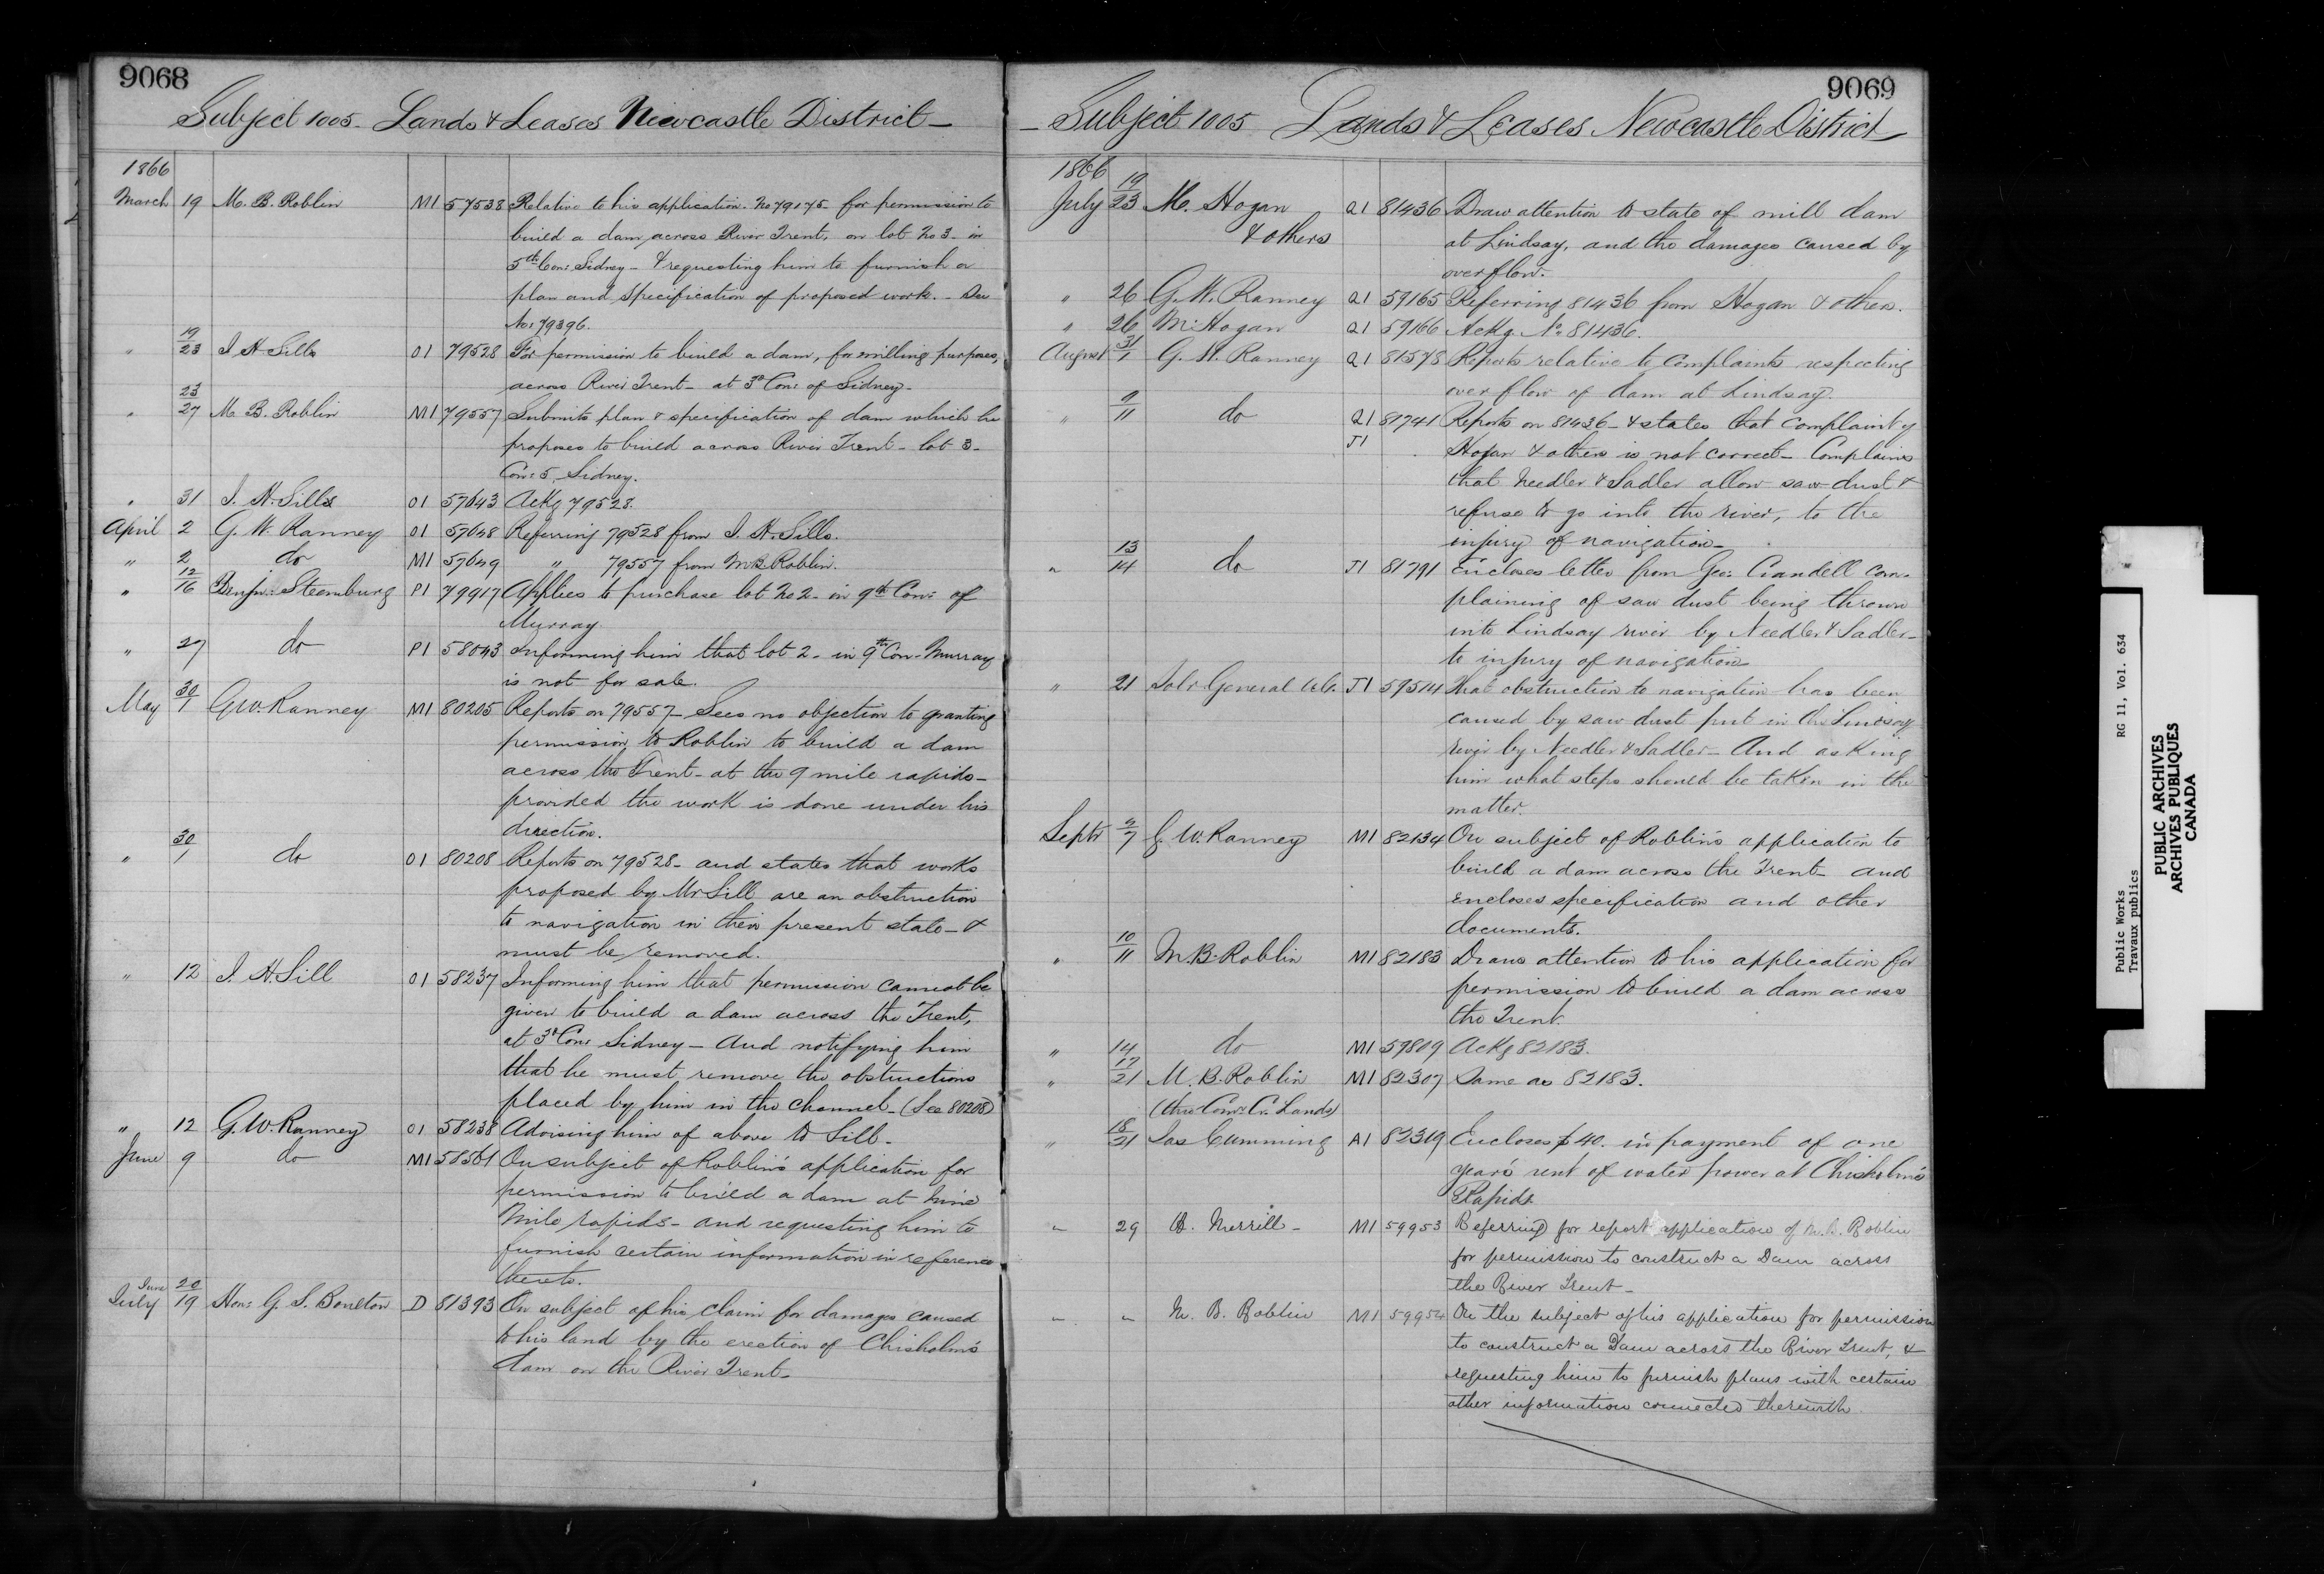 9068
Subject 1005 - Lands & Leases Newcastle District -
1866
March 19 M. B. Roblin M1 57538 Relative to his application. No 79175 for permission to
build a dam across River Trent, on lot No 3 - in
5th Con: Sidney - & requesting him to furnish a
plan and specification of proposed work. - See
No: 79396.
" 19/23 J H Sills O1 79528 For permission to build a dam, for milling purposes,
across River Trent - at 3d Con: of Sidney -
" 23/27 M. B. Roblin M1 79557 Submits plan & specification of dam which he
proposes to build across River Trent - lot 3 -
Con: 5, Sidney.
" 31 J. H. Sills O1 57643 Ackg 79528.
April 2 G. W. Ranney O1 57648 Referring 79528 from J. H. Sills.
" 2 do M1 57649 " 79557 from M B. Roblin.
" 12/16 Benjn: Steenburg P1 79917 Applies to purchase lot No 2 - in 9th Con: of
Murray
" 27 do P1 58043 Informing him that lot 2 - in 9th Con - Murray
is not for sale.
May 30/1 G W. Ranney M1 80205 Reports on 79557 - Sees no objection to granting
permission to Roblin to build a dam
across the Trent - at the 9 mile rapids -
provided the work is done under his
direction.
" 30/1 do O1 80208 Reports on 79528 - and states that works
proposed by Mr Sill are an obstruction
to navigation in their present state - &
must be removed.
" 12 J. H. Sill O1 58237 Informing him that permission cannot be
given to build a dam across the Trent,
at 3d Con: Sidney - And notifying him
that he must remove the obstructions
placed by him in the channel - (See 80208)
" 12 G. W. Ranney O1 58238 Advising him of above to Sill -
June 9 do M1 58561 On subject of Roblin's application for
permission to build a dam at nine
mile rapids - and requesting him to
furnish certain information in reference
thereto.
June 20/July 19 Hon: G. S. Boulton D 81393 On subject of his claim for damages caused
to his land by the erection of Chisholm's
dam on the River Trent -
9069
- Subject 1005 Lands & Leases Newcastle District
1866
July 19/23 M. Hogan Q1 81436 Draw attention to state of mill dam
& others at Lindsay, and the damages caused by
overflow.
" 26 G. W. Ranney Q1 59165 Referring 81436 from Hogan & others.
" 26 M: Hogan Q1 59166 Ackg. No. 81436.
August 31/1 G. W. Ranney Q1 81578 Reports relative to complaints respecting
overflow of dam at Lindsay.
" 9/11 do Q1 81741 Reports on 81436 - & states that complaint of
J1 Hogan & others is not correct - Complains
that Needler & Sadler allow saw dust &
refuse to go into the river, to the
injury of navigation -
" 13/14 do J1 81791 Encloses letter from Geo: Crandell com-
plaining of saw dust being thrown
into Lindsay river by Needler & Sadler -
to injury of navigation -
" 21 Solr General J1 59514 That obstruction to navigation has been
caused by saw dust put in the Lindsay
river by Needler & Sadler - And asking
him what steps should be taken in the
matter.
Septr 7 G. W. Ranney M1 82134 On subject of Roblin's application to
build a dam across the Trent - and
encloses specification and other
documents.
" 10/11 M B. Roblin M1 82183 Draws attention to his application for
permission to build a dam across
the Trent.
" 14 do M1 59809 Ackg 82183.
" 17/21 M. B. Roblin M1 82307 Same as 82183.
(thro Comr Cr. Lands)
" 18/21 Jas Cumming A1 82319 Encloses $40. in payment of one
year's rent of water power at Chisholm's
Rapids
" 29 H. Merrill - M1 59953 Referring for report application of M. B. Roblin
for permission to construct a Dam across
the River Trent -
" " M. B. Roblin M1 59954 On the subject of his application for permission
to construct a Dam across the River Trent, &
requesting him to furnish plans with certain
other information connected therewith
Public Works RG 11, Vol. 634
Travaux publics
PUBLIC ARCHIVES
ARCHIVES PUBLIQUES
CANADA